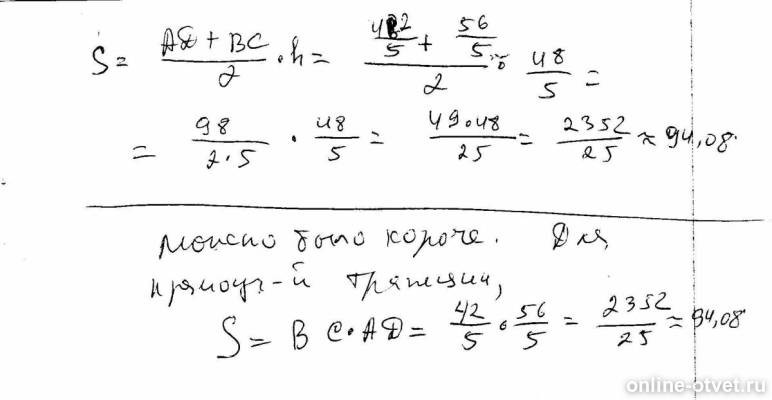 S = (AD + BC)/2 · h = (42/5 + 56/5)/2 · 48/5 =
= 98/(2·5) · 48/5 = 49·48/25 = 2352/25 ≈ 94,08
Можно было короче. Для
прямоуг-й трапеции,
S = BC·AD = 42/5 · 56/5 = 2352/25 ≈ 94,08
online-otvet.ru